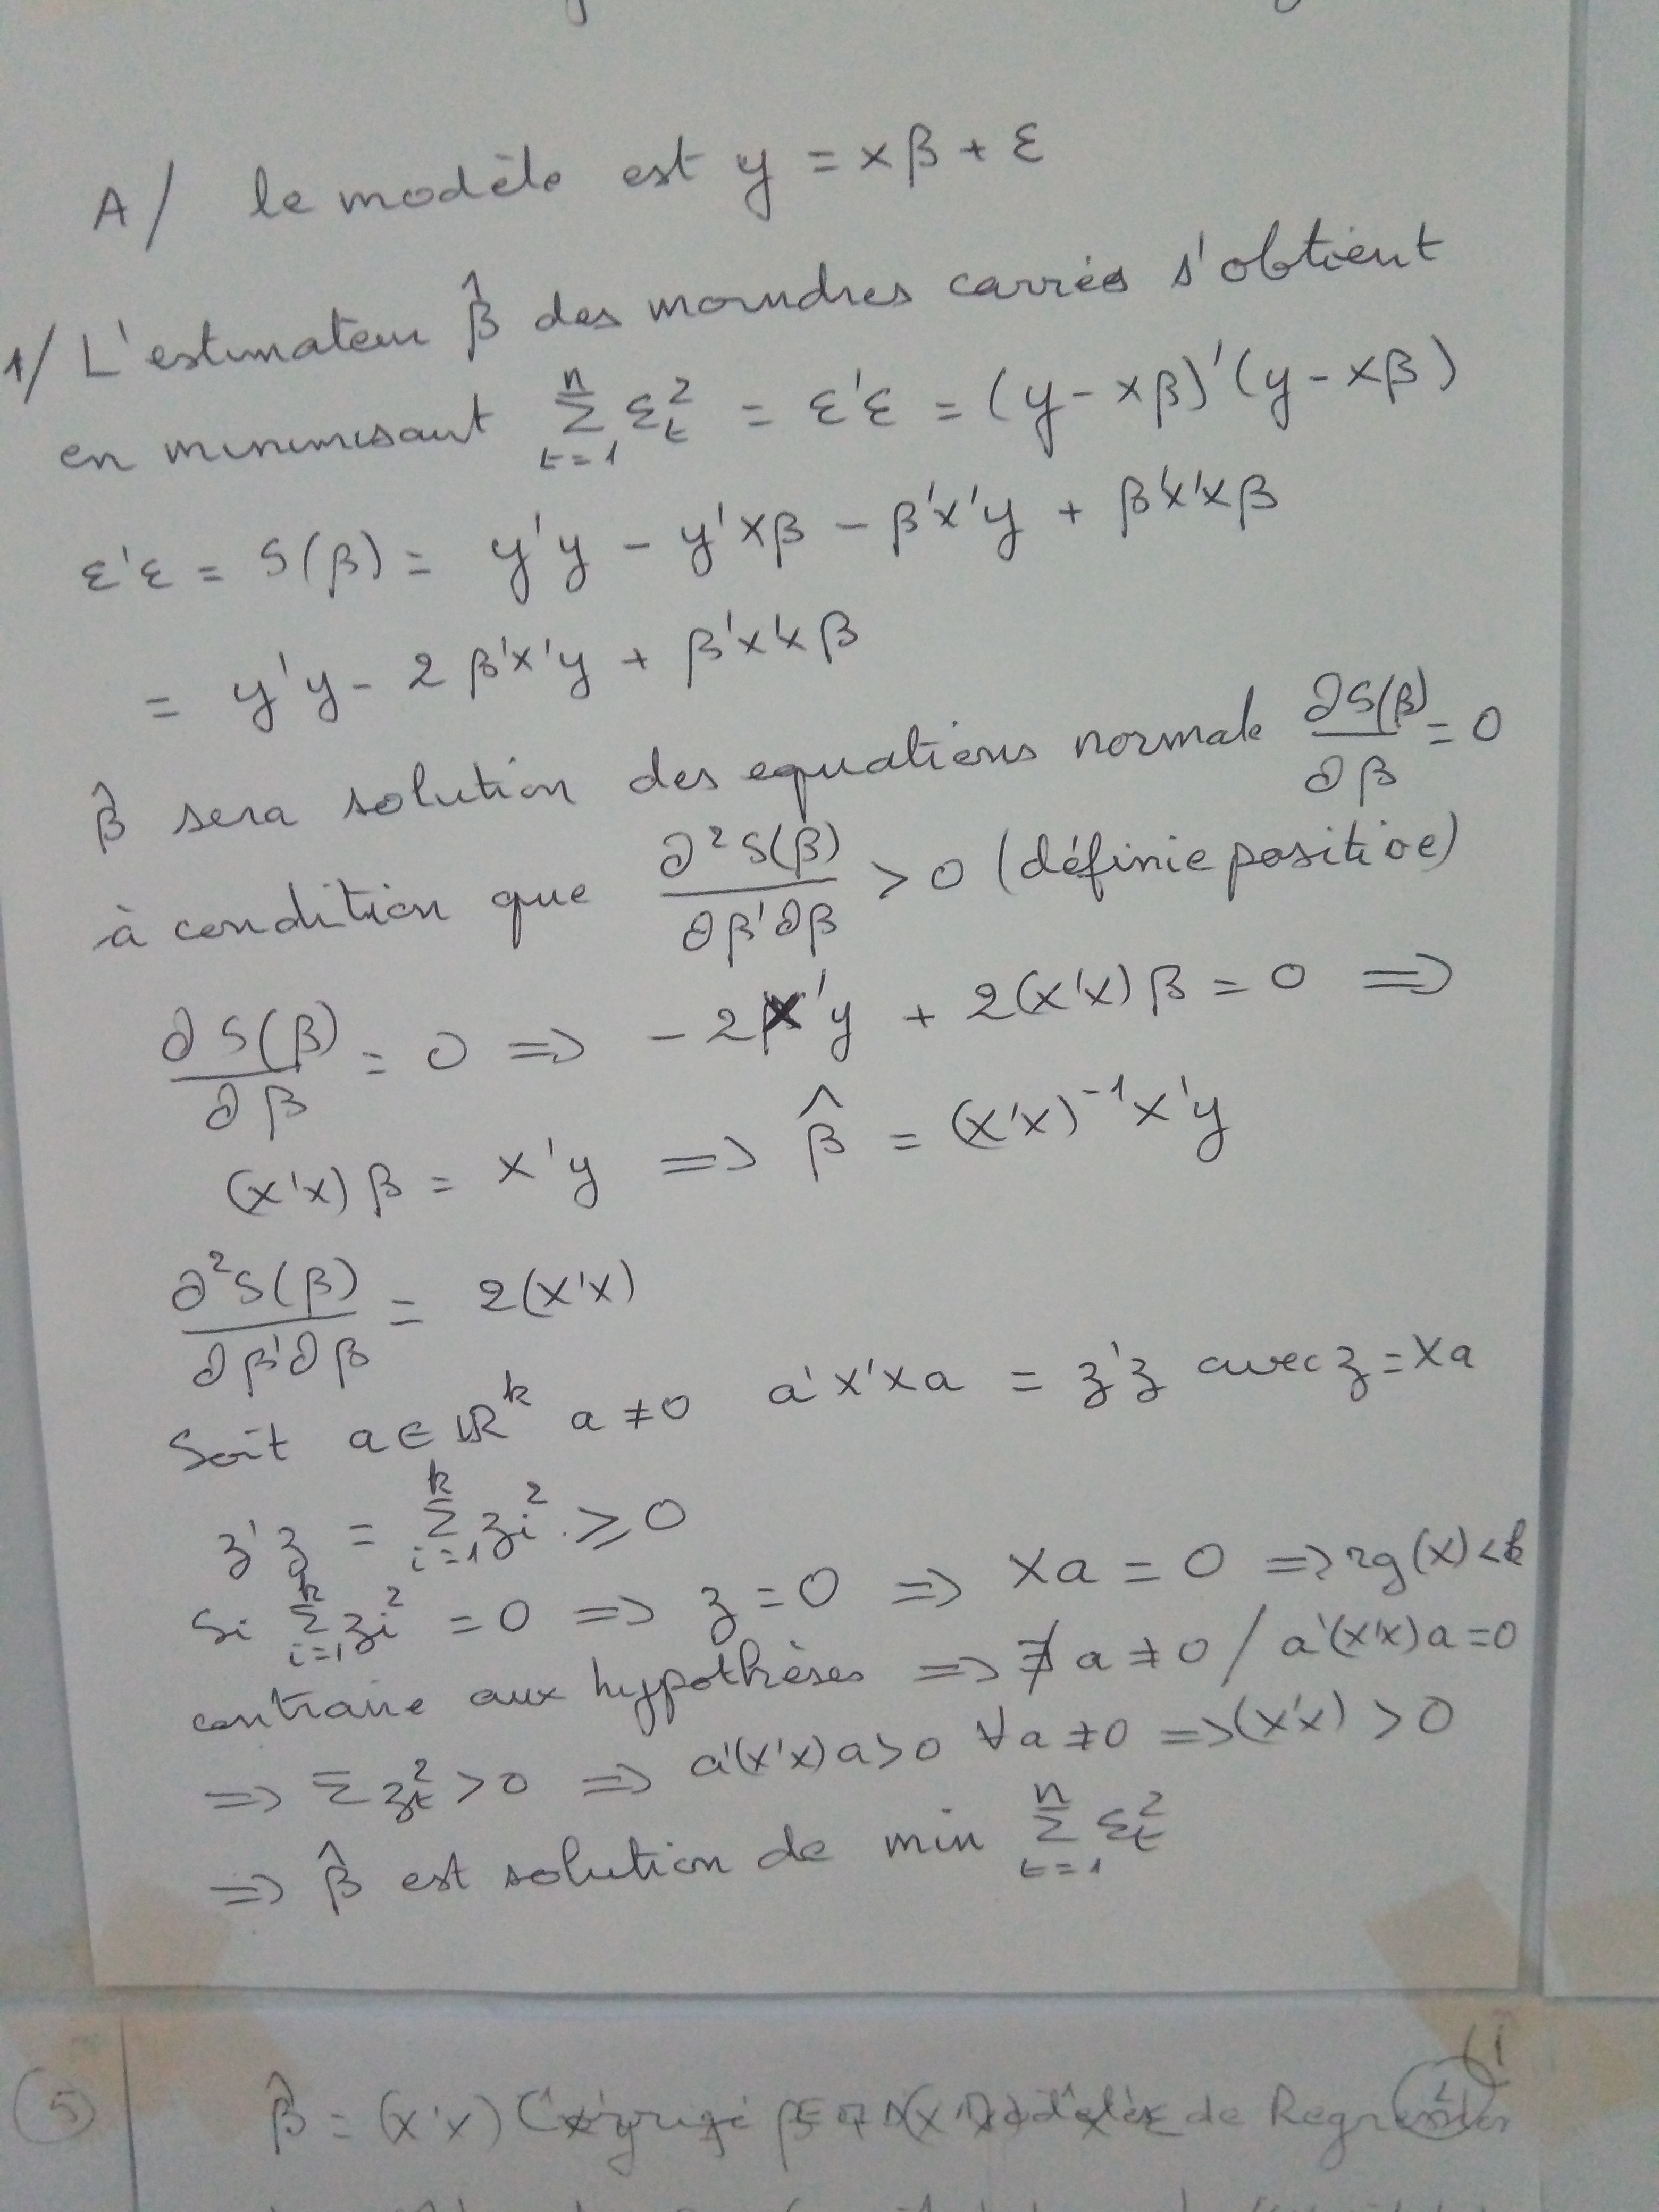 A/ le modèle est y = xβ + ε
1/ L'estimateur β̂ des moindres carrés s'obtient
en minimisant Σ_{t=1}^{n} ε_t² = ε'ε = (y - xβ)'(y - xβ)
ε'ε = S(β) = y'y - y'xβ - β'x'y + β'x'xβ
= y'y - 2β'x'y + β'x'xβ
β̂ sera solution des equations normale ∂S(β)/∂β = 0
à condition que ∂²S(β)/∂β'∂β > 0 (définie positive)
∂S(β)/∂β = 0 => -2x'y + 2(x'x)β = 0 =>
(x'x)β = x'y => β̂ = (x'x)⁻¹x'y
∂²S(β)/∂β'∂β = 2(x'x)
Soit a ∈ ℝ^k a ≠ 0 a'x'xa = z'z avec z = xa
z'z = Σ_{i=1}^{k} z_i² ≥ 0
Si Σ_{i=1}^{k} z_i² = 0 => z = 0 => xa = 0 => rg(x) < k
contraire aux hypothèses => ∄ a ≠ 0 / a'(x'x)a = 0
=> Σ z_t² > 0 => a'(x'x)a > 0 ∀a ≠ 0 => (x'x) > 0
=> β̂ est solution de min Σ_{t=1}^{n} ε_t²
5
β̂ = (x'x) de Regression